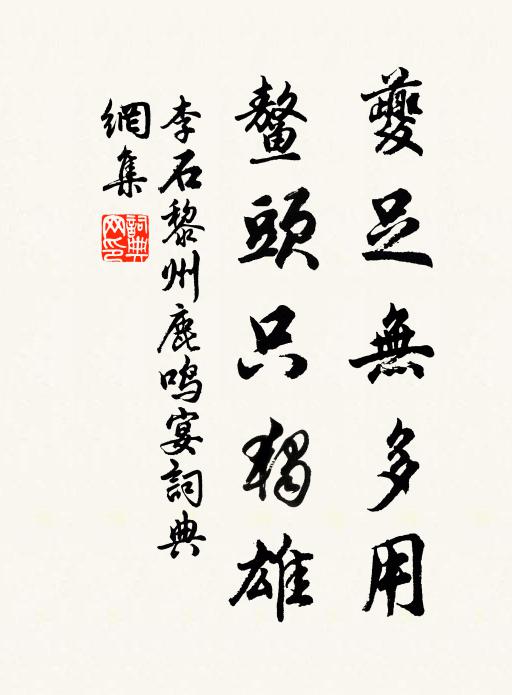 夔足無多用
鼇頭只獨雄
李石黎州鹿鳴宴詞典
網集
詞典網印